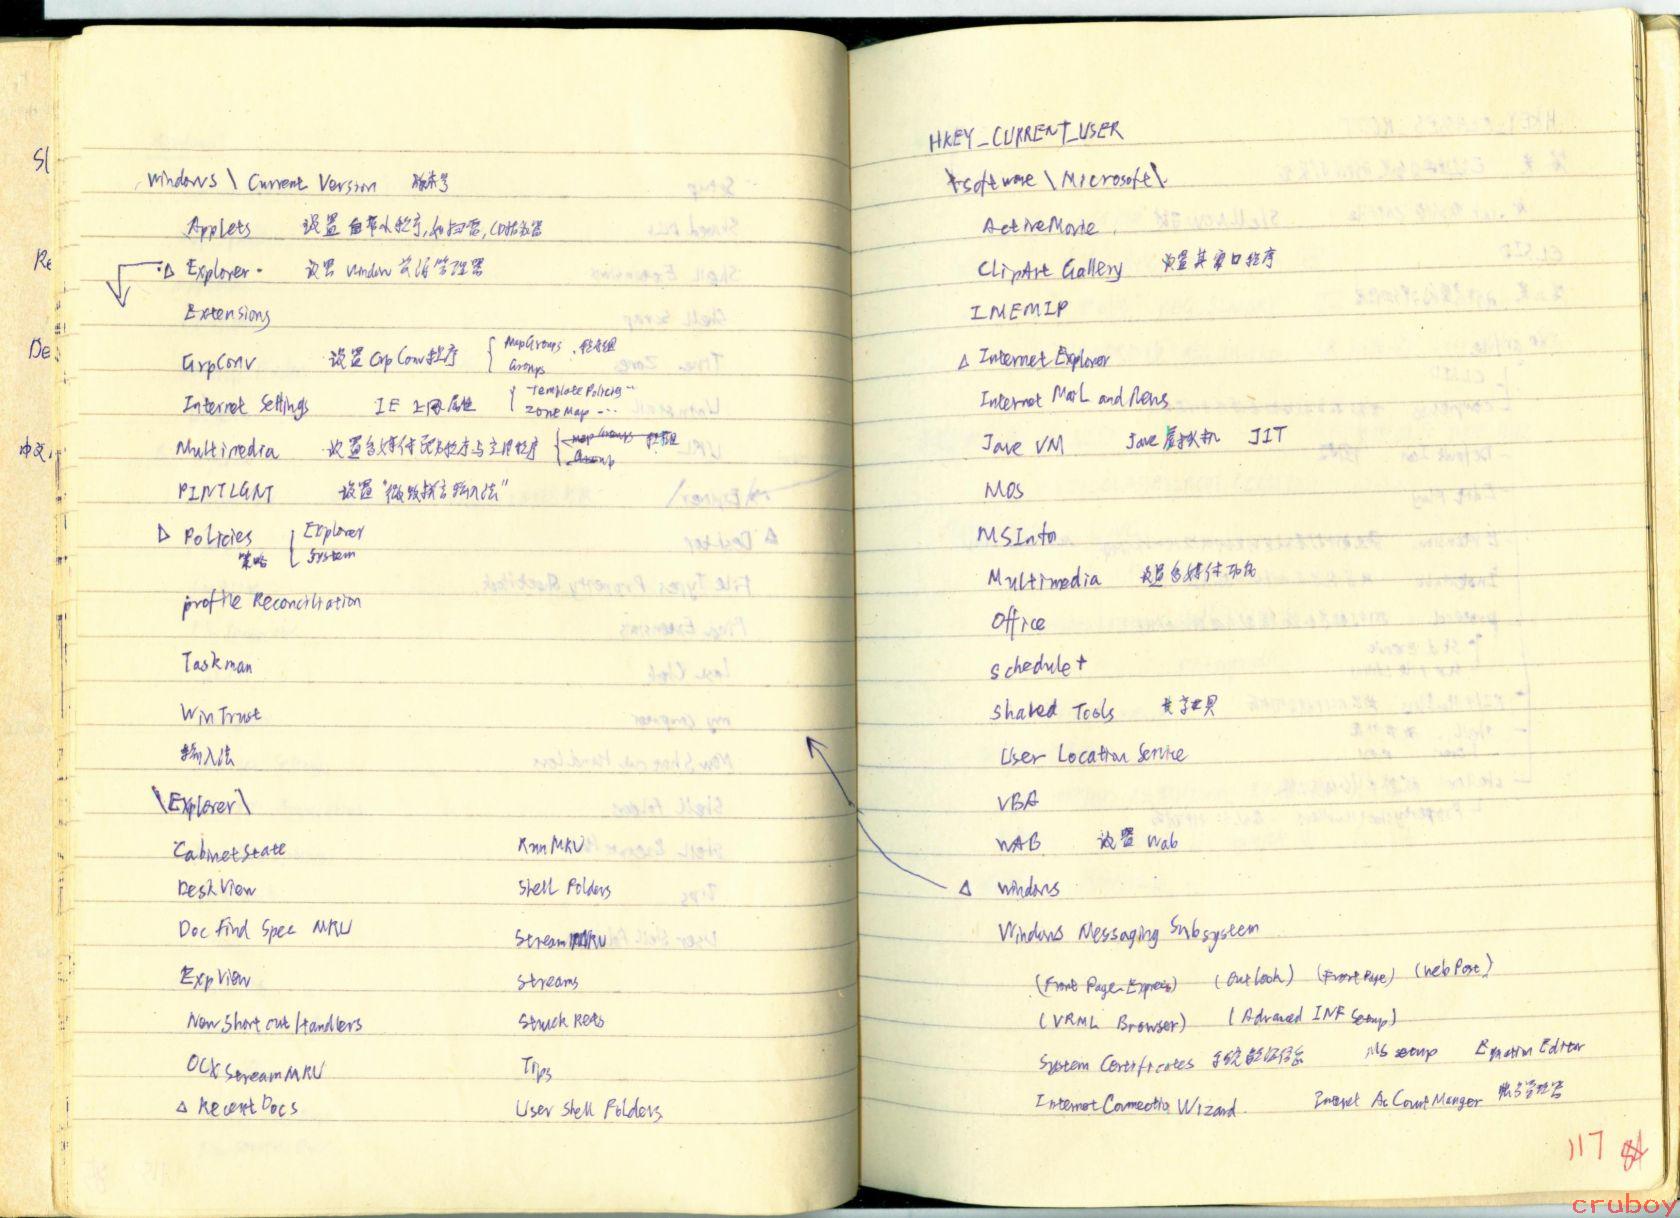 Windows \ Current Version 版本号
Applets 设置自带小程序,如扫雷,CD播放器
△ Explorer. 设置 Window 资源管理器
Extensions
GrpConv 设置GrpConv程序 { MapGroups 程序组
Groups
Internet Settings IE 上网属性 { TemplatePolicies ...
ZoneMap ...
Multimedia 设置多媒体 程序与 程序 {
PINTLGNT 设置"微软拼音输入法"
△ Policies Explorer
策略 System
profile Reconciliation
Taskman
WinTrust
输入法
\Explorer\
CabinetState RunMRU
DeskView Shell Folders
Doc Find Spec MRU StreamMRU
ExpView Streams
NewShortcutHandlers StuckRects
OCXStreamMRU Tips
△ RecentDocs User Shell Folders
HKEY_CURRENT_USER
\Software \ Microsoft\
ActiveMovie
ClipArt Gallery 设置其窗口程序
IMEMIP
△ Internet Explorer
Internet Mail and News
Jave VM Jave虚拟机 JIT
MOS
MSInfo
Multimedia 设置多媒体功能
Office
Schedule+
Shared Tools 共享工具
User Location Service
VBA
WAB 设置 Wab
△ Windows
Windows Messaging Subsystem
(Front Page Express) (Outlook) (FrontPage) (WebPost)
(VRML Browser) (Advanced INF Setup)
System Certificates MS setup Equation Editor
Internet Connection Wizard. Internet Account Manger 帐号管理
117
cruboy